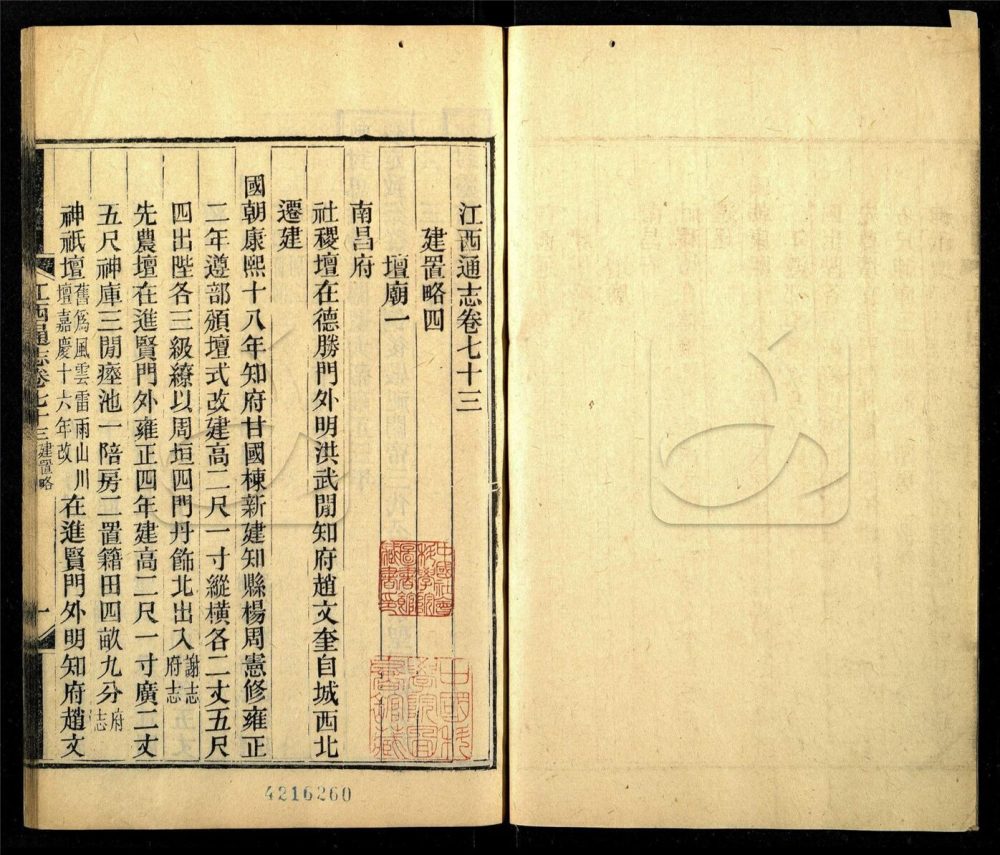 江西通志卷七十三
建置略四
壇廟一
南昌府
社稷壇在德勝門外明洪武閒知府趙文奎自城西北
遷建
國朝康熙十八年知府甘國棟新建知縣楊周憲修雍正
二年遵部頒壇式改建高二尺一寸縱橫各二丈五尺
四出陛各三級繚以周垣四門丹飾北出入謝志府志
先農壇在進賢門外雍正四年建高二尺一寸廣二丈
五尺神庫三閒瘞池一陪房二置籍田四畝九分府志
神祇壇舊爲風雲雷雨山川壇嘉慶十六年改在進賢門外明知府趙文
江西通志卷七十三 建置略 一
中國社會科學院圖書館藏書印
4216260